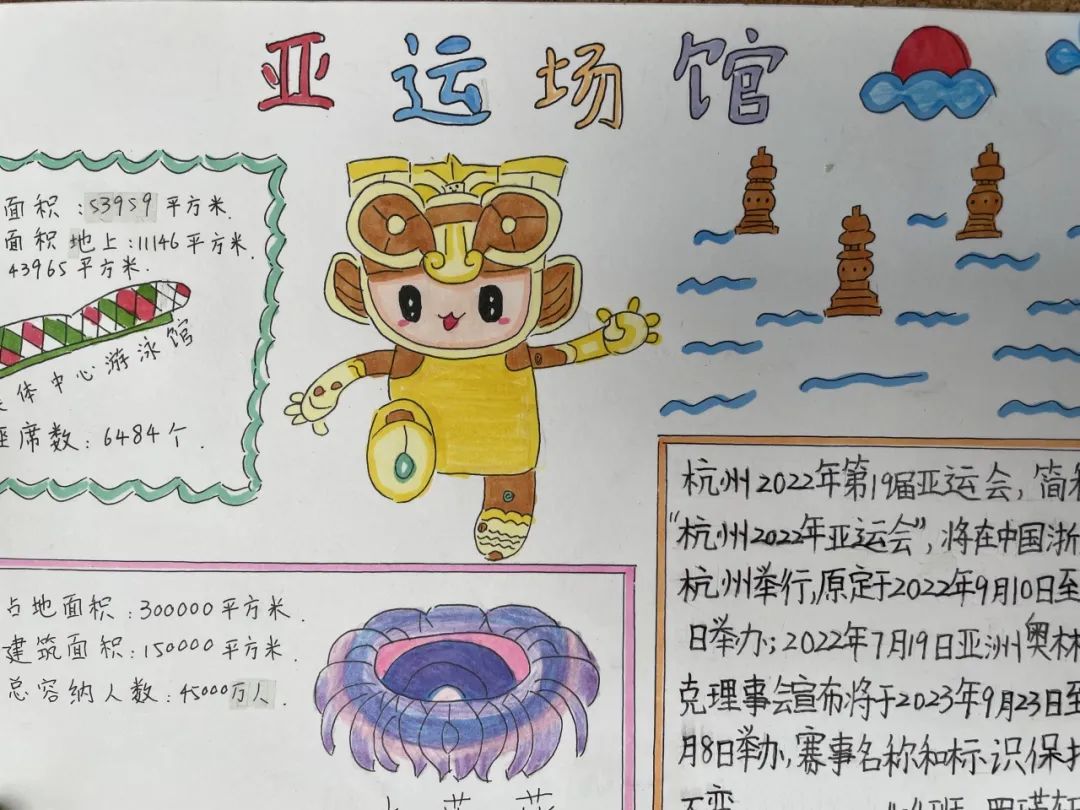 亚运场馆
面积：53959平方米.
面积地上：11146平方米.
43965平方米.
体中心游泳馆
座席数：6484个.
占地面积：300000平方米.
建筑面积：150000平方米.
总容纳人数：45000万人.
杭州2022年第19届亚运会，简称
“杭州2022年亚运会”，将在中国浙
杭州举行，原定于2022年9月10日至
日举办；2022年7月19日亚洲奥林
克理事会宣布将于2023年9月23日至
月8日举办，赛事名称和标识保持
不变